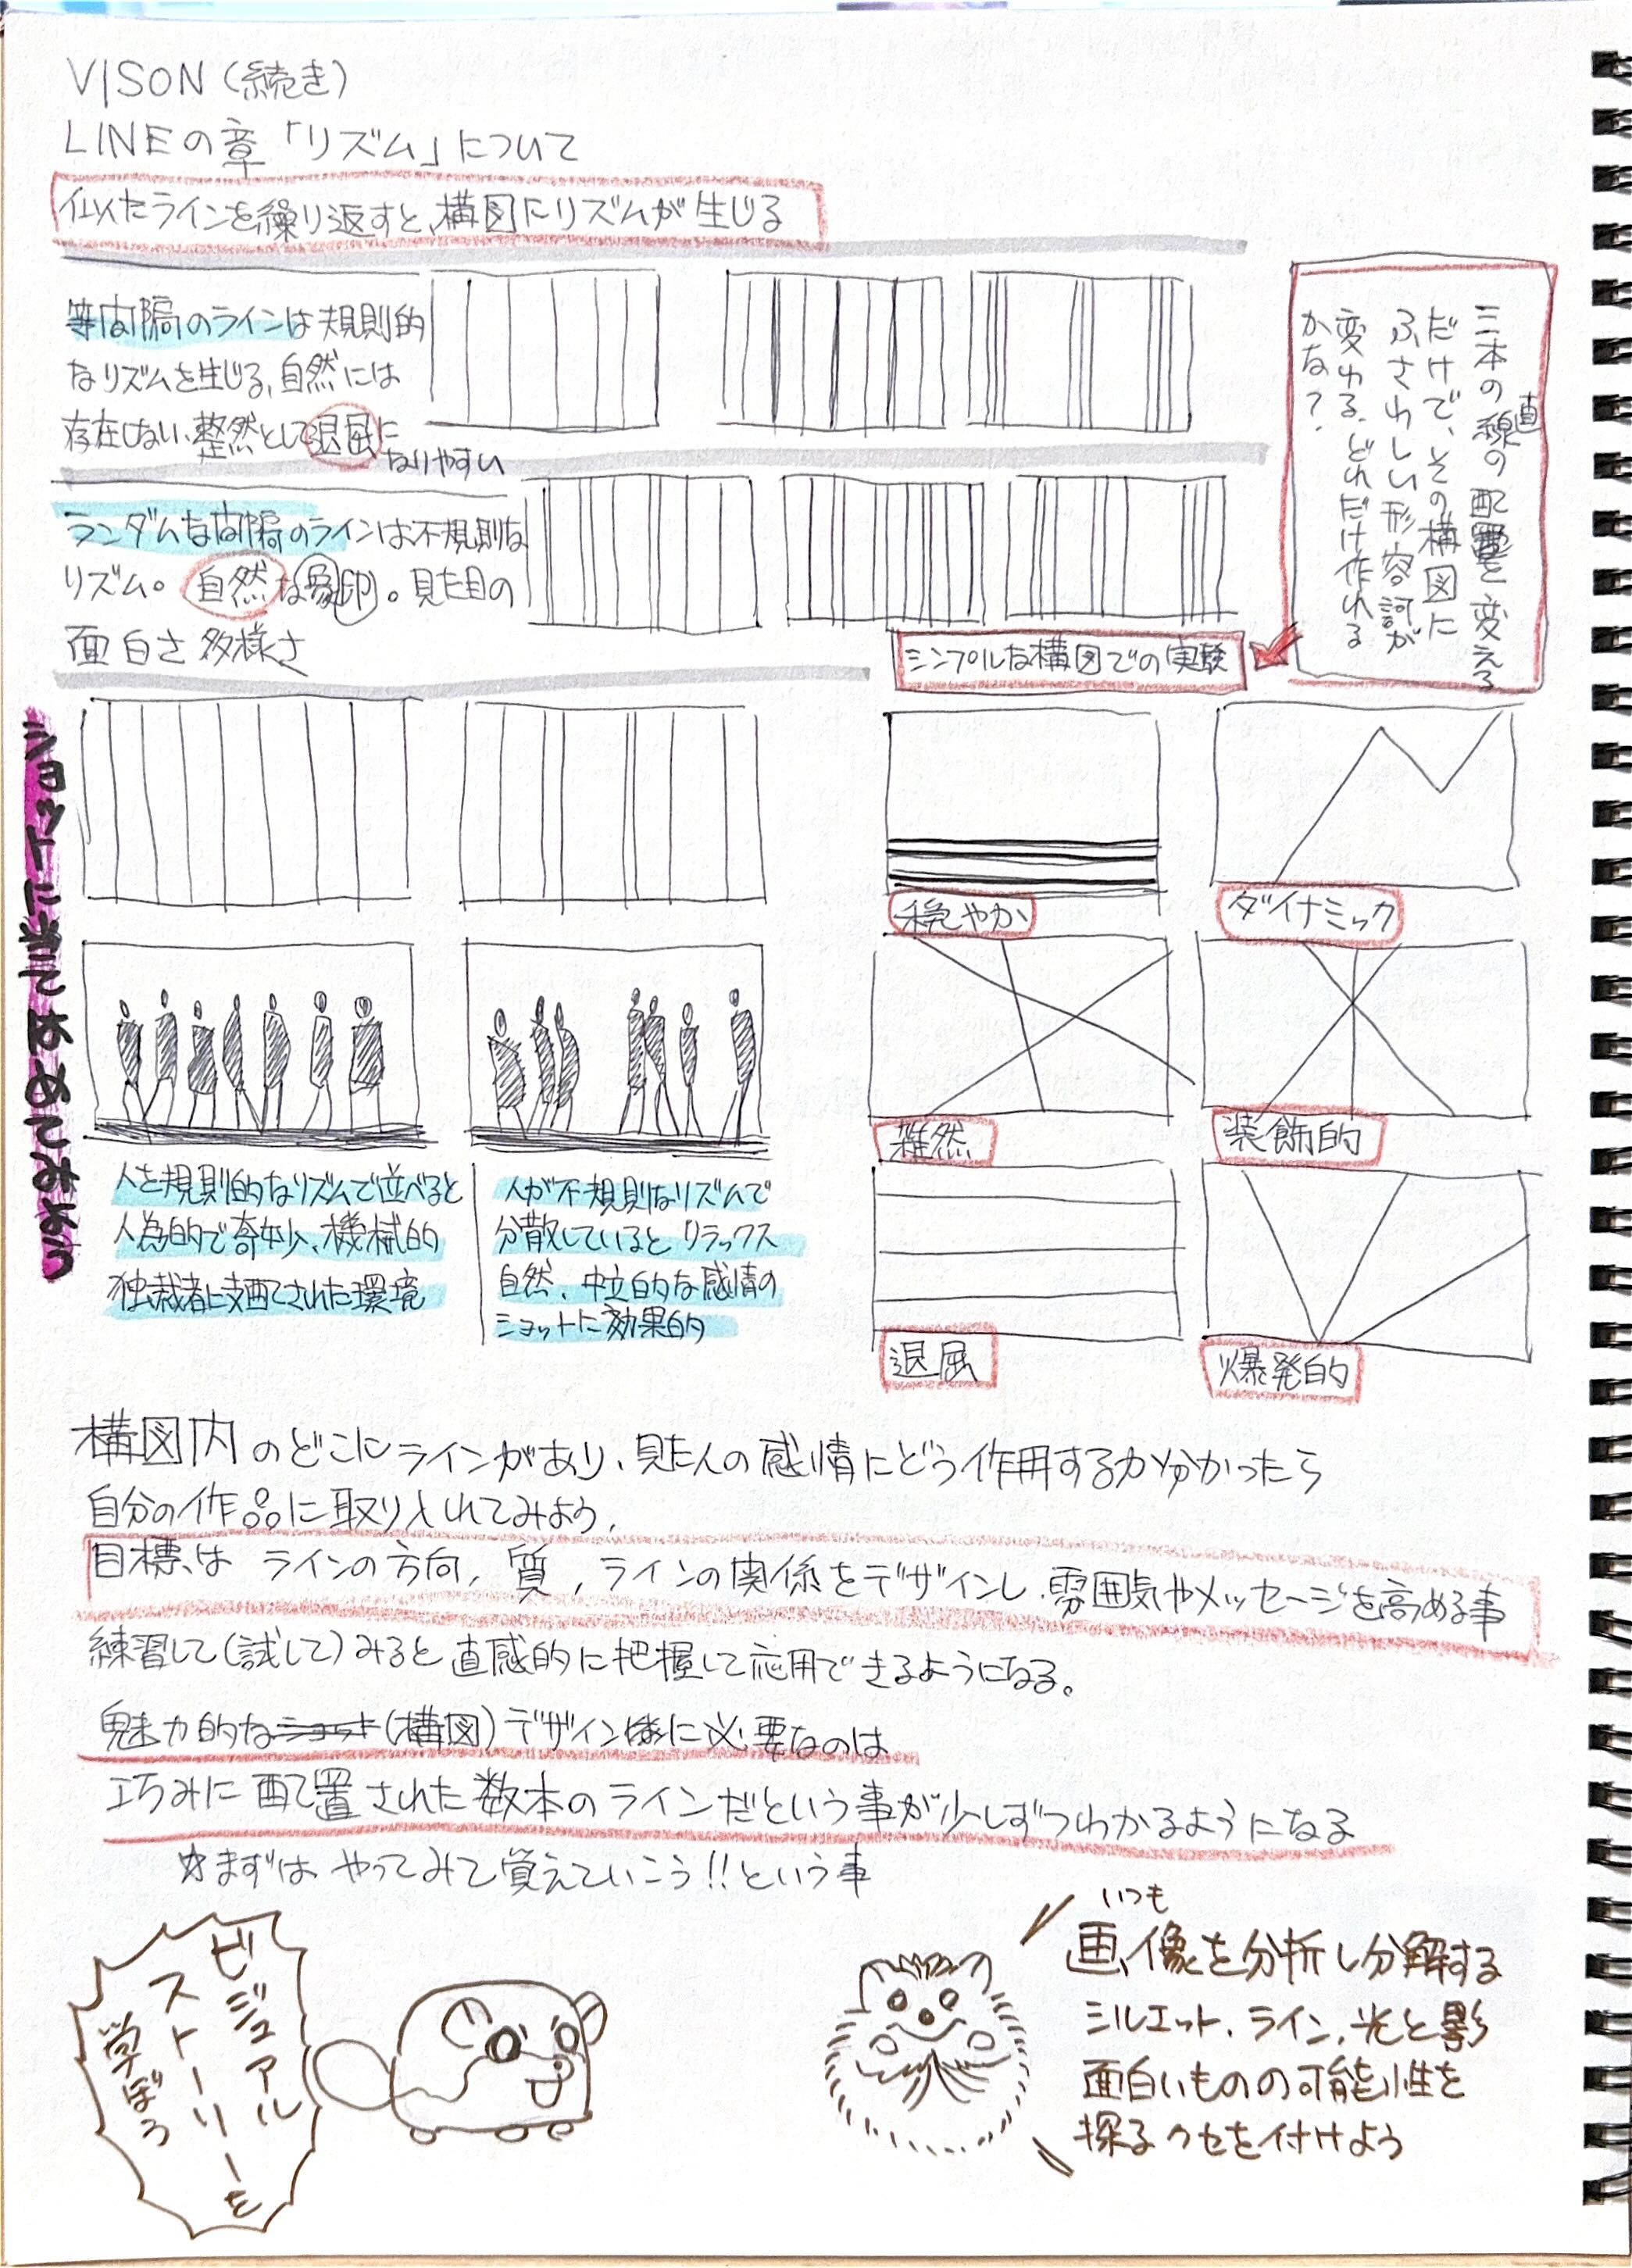 VISON (続き)
LINEの章「リズム」について
似たラインを繰り返すと、構図にリズムが生じる
等間隔のラインは規則的
なリズムを生じる、自然には
存在しない、整然として退屈に
なりやすい
ランダムな間隔のラインは不規則な
リズム。自然な印象。見た目の
面白さ多様さ
三本の直線の配置を変える
だけで、その構図に
ふさわしい形容詞が
変わる、どれだけ作れる
かな?
シンプルな構図での実験
ショットに当てはめてみよう
人を規則的なリズムで並べると
人為的で奇妙、機械的
独裁者に支配された環境
人が不規則なリズムで
分散しているとリラックス
自然、中立的な感情の
ショットに効果的
穏やか
ダイナミック
雑然
装飾的
退屈
爆発的
構図内のどこにラインがあり、見た人の感情にどう作用するか分かったら
自分の作品に取り入れてみよう、
目標は ラインの方向、質、ラインの関係をデザインし、雰囲気やメッセージを高める事
練習して(試して)みると直感的に把握して応用できるようになる。
魅力的なショット(構図)デザインに必要なのは
巧みに配置された数本のラインだという事が少しずつわかるようになる
☆まずは やってみて覚えていこう!!という事
ビジュアル
ストーリーを
学ぼう
いつも
画像を分析し分解する
シルエット、ライン、光と影
面白いものの可能性を
探るクセを付けよう